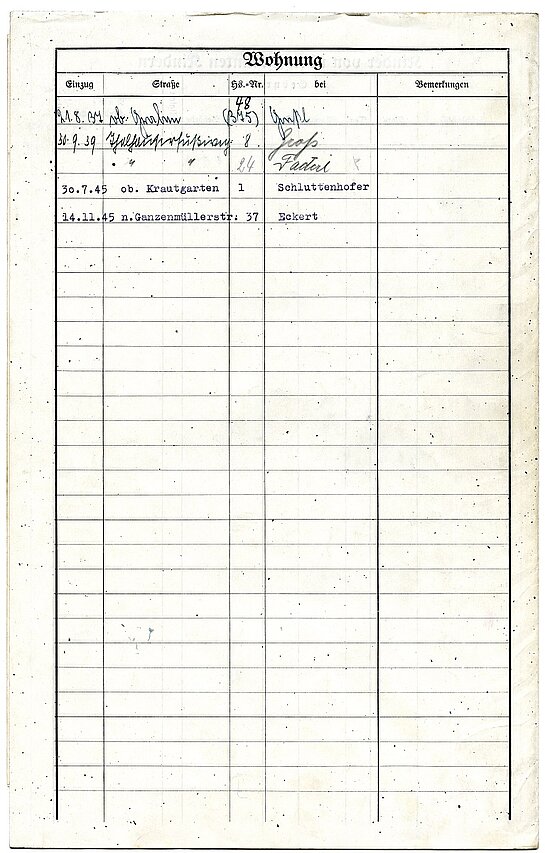 Wohnung
Einzug Straße Hs.-Nr. bei Bemerkungen
48
21.8.37 ob. Graben (375)
30.9.39 8. Groß
" " 24
30.7.45 ob. Krautgarten 1 Schluttenhofer
14.11.45 n.Ganzenmüllerstr. 37 Eckert